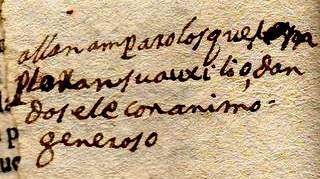 allan amparo los que ym
ploran su auxilio, dan
dosele con animo
generoso